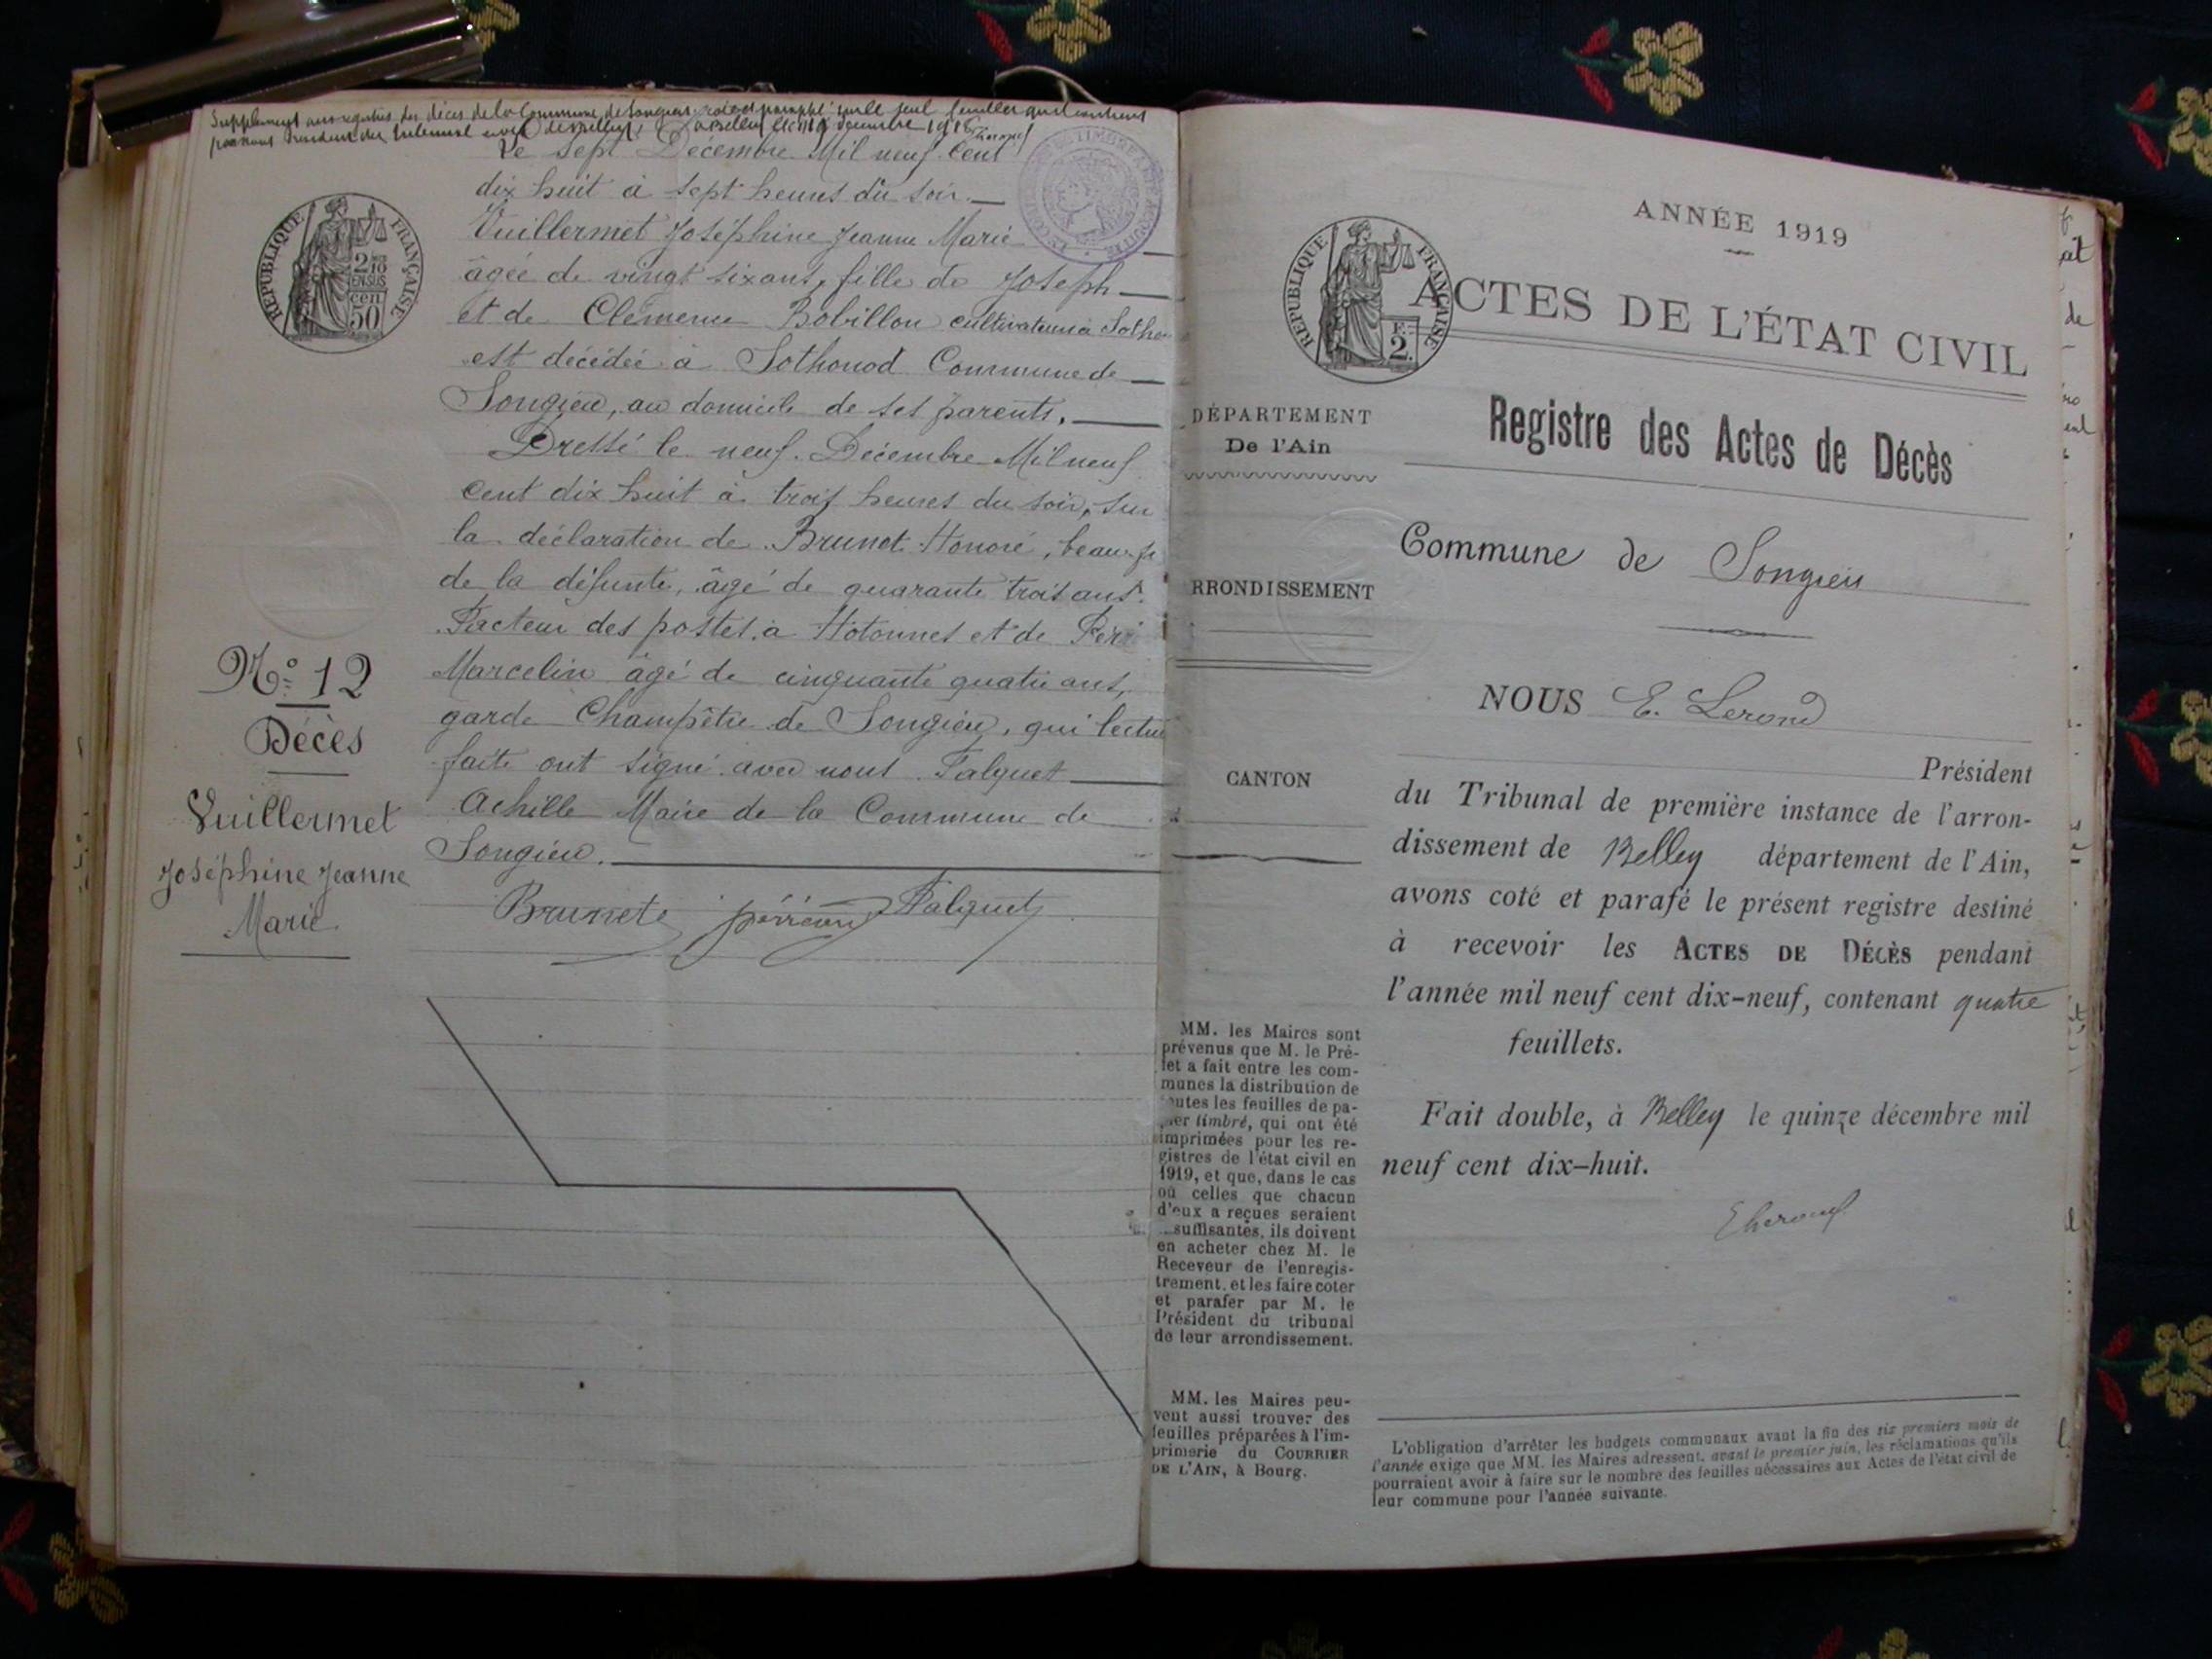 Supplément aux registres des décès de la Commune de Songieu, coté et paraphé sur le seul feuillet qu'il contient
par nous Président du tribunal civil de Belley, à Belley le décembre 1918
Le sept Décembre Mil neuf Cent
dix huit à sept heures du soir.
Vuillermet Joséphine Jeanne Marie
âgée de vingt six ans, fille de Joseph
et de Clémence Bobillon cultivateurs à Sotho
est décédée à Sothonod Commune de
Songieu, au domicile de ses parents.
Dressé le neuf Décembre Mil neuf
Cent dix huit à trois heures du soir, sur
la déclaration de Brunet Honoré, beau-fr
de la défunte, âgé de quarante trois ans.
Facteur des postes à Hotonnes et de
Marcelin âgé de cinquante quatre ans,
garde Champêtre de Songieu, qui lecture
faite ont signé avec nous Falquet
Achille Maire de la Commune de
Songieu.
Brunet Falquet
RÉPUBLIQUE FRANÇAISE
2/10
EN SUS
cen
50
No. 12
Décès
Vuillermet
Joséphine Jeanne
Marie
ANNÉE 1919
RÉPUBLIQUE FRANÇAISE
2.
ACTES DE L'ÉTAT CIVIL
Registre des Actes de Décès
DÉPARTEMENT
De l'Ain
RRONDISSEMENT
CANTON
Commune de Songieu
NOUS E. Lerond
Président
du Tribunal de première instance de l'arron-
dissement de Belley département de l'Ain,
avons coté et parafé le présent registre destiné
à recevoir les ACTES DE DÉCÈS pendant
l'année mil neuf cent dix-neuf, contenant quatre
feuillets.
Fait double, à Belley le quinze décembre mil
neuf cent dix-huit.
MM. les Maires sont
prévenus que M. le Pré-
fet a fait entre les com-
munes la distribution de
toutes les feuilles de pa-
pier timbré, qui ont été
imprimées pour les re-
gistres de l'état civil en
1919, et que, dans le cas
où celles que chacun
d'eux a reçues seraient
suffisantes, ils doivent
en acheter chez M. le
Receveur de l'enregis-
trement, et les faire coter
et parafer par M. le
Président du tribunal
de leur arrondissement.
MM. les Maires peu-
vent aussi trouver des
feuilles préparées à l'im-
primerie du COURRIER
DE L'AIN, à Bourg.
L'obligation d'arrêter les budgets communaux avant la fin des six premiers mois de
l'année exige que MM. les Maires adressent, avant le premier juin, les réclamations qu'ils
pourraient avoir à faire sur le nombre des feuilles nécessaires aux Actes de l'état civil de
leur commune pour l'année suivante.